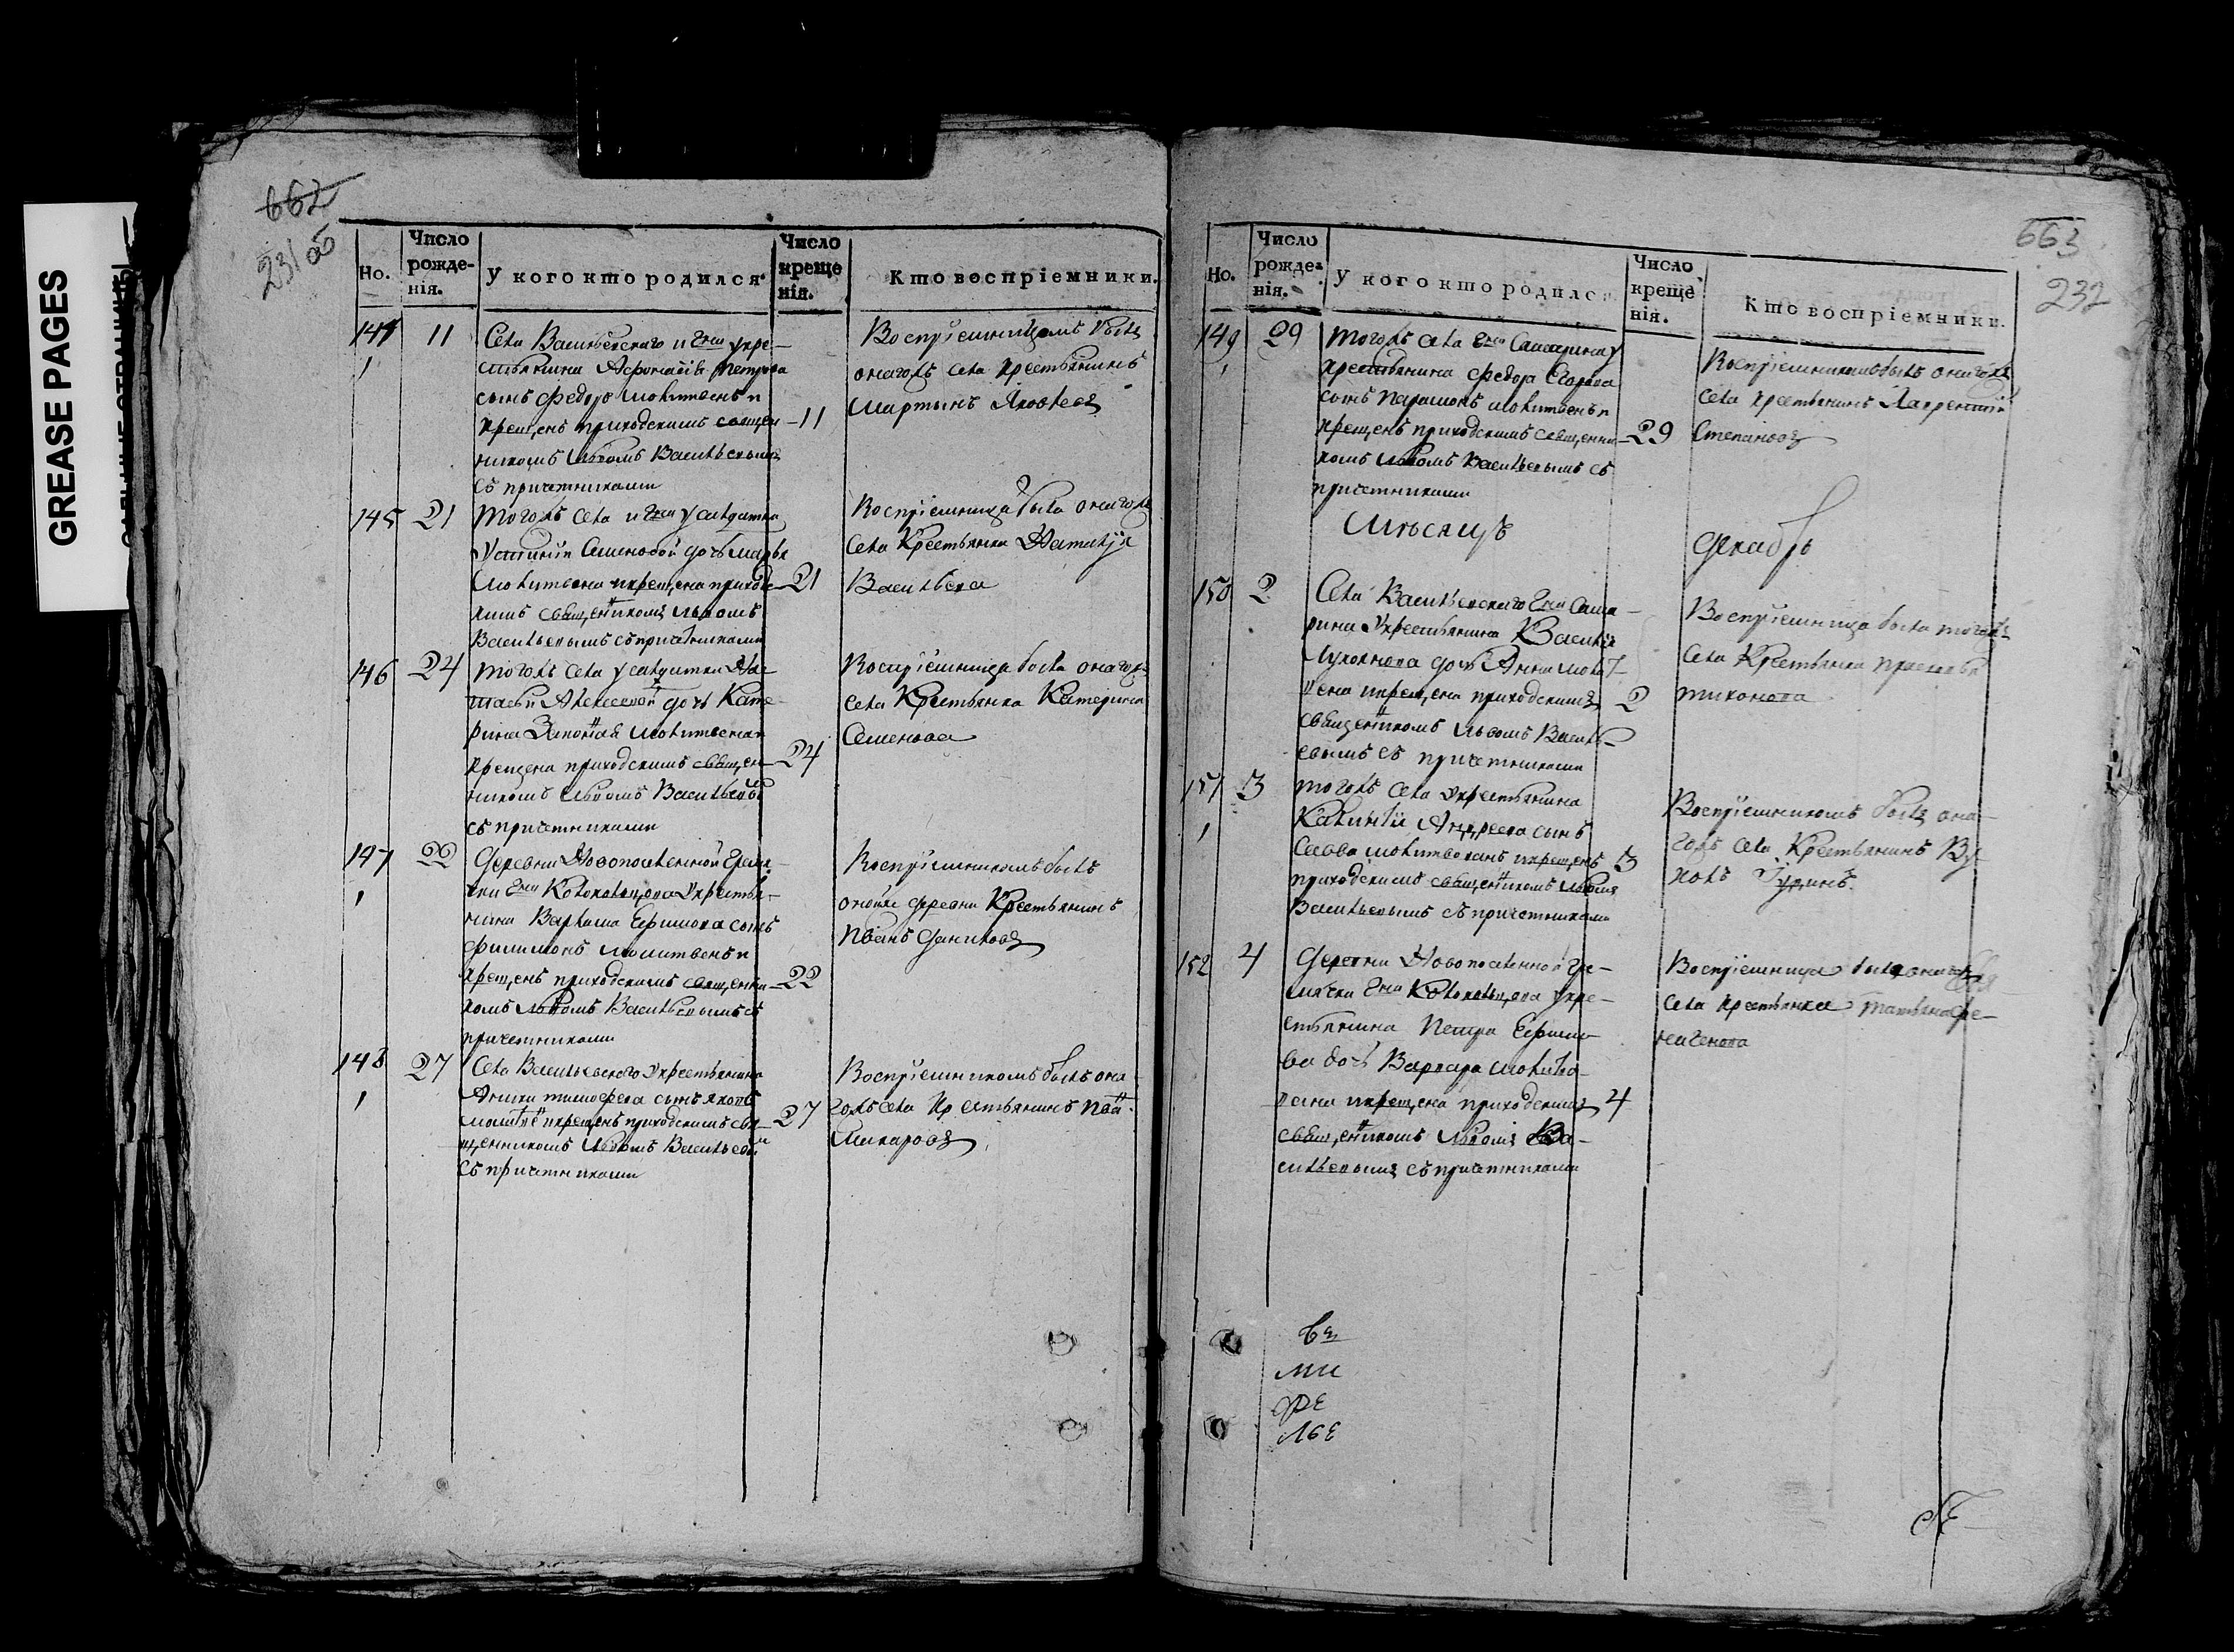 GREASE PAGES
662
231 об
Но.
Число рожде-нія.
У кого кто родился.
Число креще нія.
Кто воспріемники.
144 11
Села Васильевскаго и Гжи укре-
стьянина Афонасія Петрова
сынъ Федоръ молитвенъ и
крещенъ приходскимъ священ- 11
никомъ Львомъ Васильевымъ
съ причетниками
Воспріемникомъ былъ
оногожъ села крестьянинъ
Мартынъ Яковлевъ
145 21
Тогожъ села и Гжи у салдатки
Устиніи Семеновой дочь Марья
молитвена и крещена приходс- 21
кимъ священникомъ Львомъ
Васильевымъ съ причетниками
Воспріемница была оногожъ
села Крестьянка Наталія
Васильева
146 24
Тогожъ села у салдатки На-
тальи Алексевой дочь Кате-
рина Законная молитвена и
крещена приходскимъ священ- 24
никомъ Львомъ Васильевымъ
съ причетниками
Воспріемница была оногожъ
села Крестьянка Катерина
Семенова
147 22
Деревни Новопоселенной Гремя-
чки Гжи Колокольцова укрестья-
нина Варлама Ефимова сынъ
Филимонъ молитвенъ и
крещенъ приходскимъ священни- 22
комъ Львомъ Васильевымъ съ
причетниками
Воспріемникомъ былъ
онойже деревни Крестьянинъ
Иванъ Даниловъ
148 27
Села Васильевского укрестьянина
Аники Тимофеева сынъ Яковъ
молитвенъ и крещенъ приходскимъ свя- 27
щенникомъ Львомъ Васильевымъ
съ причетниками
Воспріемникомъ былъ оно-
гожъ села крестьянинъ Иванъ
Макаровъ
663
232
Но.
Число рожде-нія.
У кого кто родился.
Число креще нія.
Кто воспріемники.
149 29
Тогожъ села Гжи Самарина у
крестьянина Федора Егорова
сынъ Парамонъ молитвенъ и
крещенъ приходскимъ священни- 29
комъ Львомъ Васильевымъ съ
причетниками
Воспріемникомъ былъ оногожъ
села крестьянинъ Лаврентій
Степановъ
Мѣсяцъ
Декабрь
150 2
Села Васильевскаго Гжи Сама-
рина укрестьянина Василія
Лукоянова дочь Анна молит-
вена и крещена приходскимъ 2
священникомъ Львомъ Василь-
евымъ съ причетниками
Воспріемница была тогожъ
села Крестьянка Прасковья
Тихонова
151 3
Тогожъ села укрестьянина
Калинъи Андреева сынъ
Савва молитвованъ и крещенъ 3
приходскимъ священникомъ Львомъ
Васильевымъ съ причетниками
Воспріемникомъ былъ оно-
гожъ села Крестьянинъ Ву-
колъ
152 4
Деревни Новопоселенной Гре-
мячки Гжи Колокольцова укре-
стьянина Петра Ефимо-
ва дочь Варвара молитво-
вана и крещена приходскимъ 4
священникомъ Львомъ Ва-
сильевымъ съ причетниками
Воспріемница была оногожъ
села крестьянка Татьяна Фе-